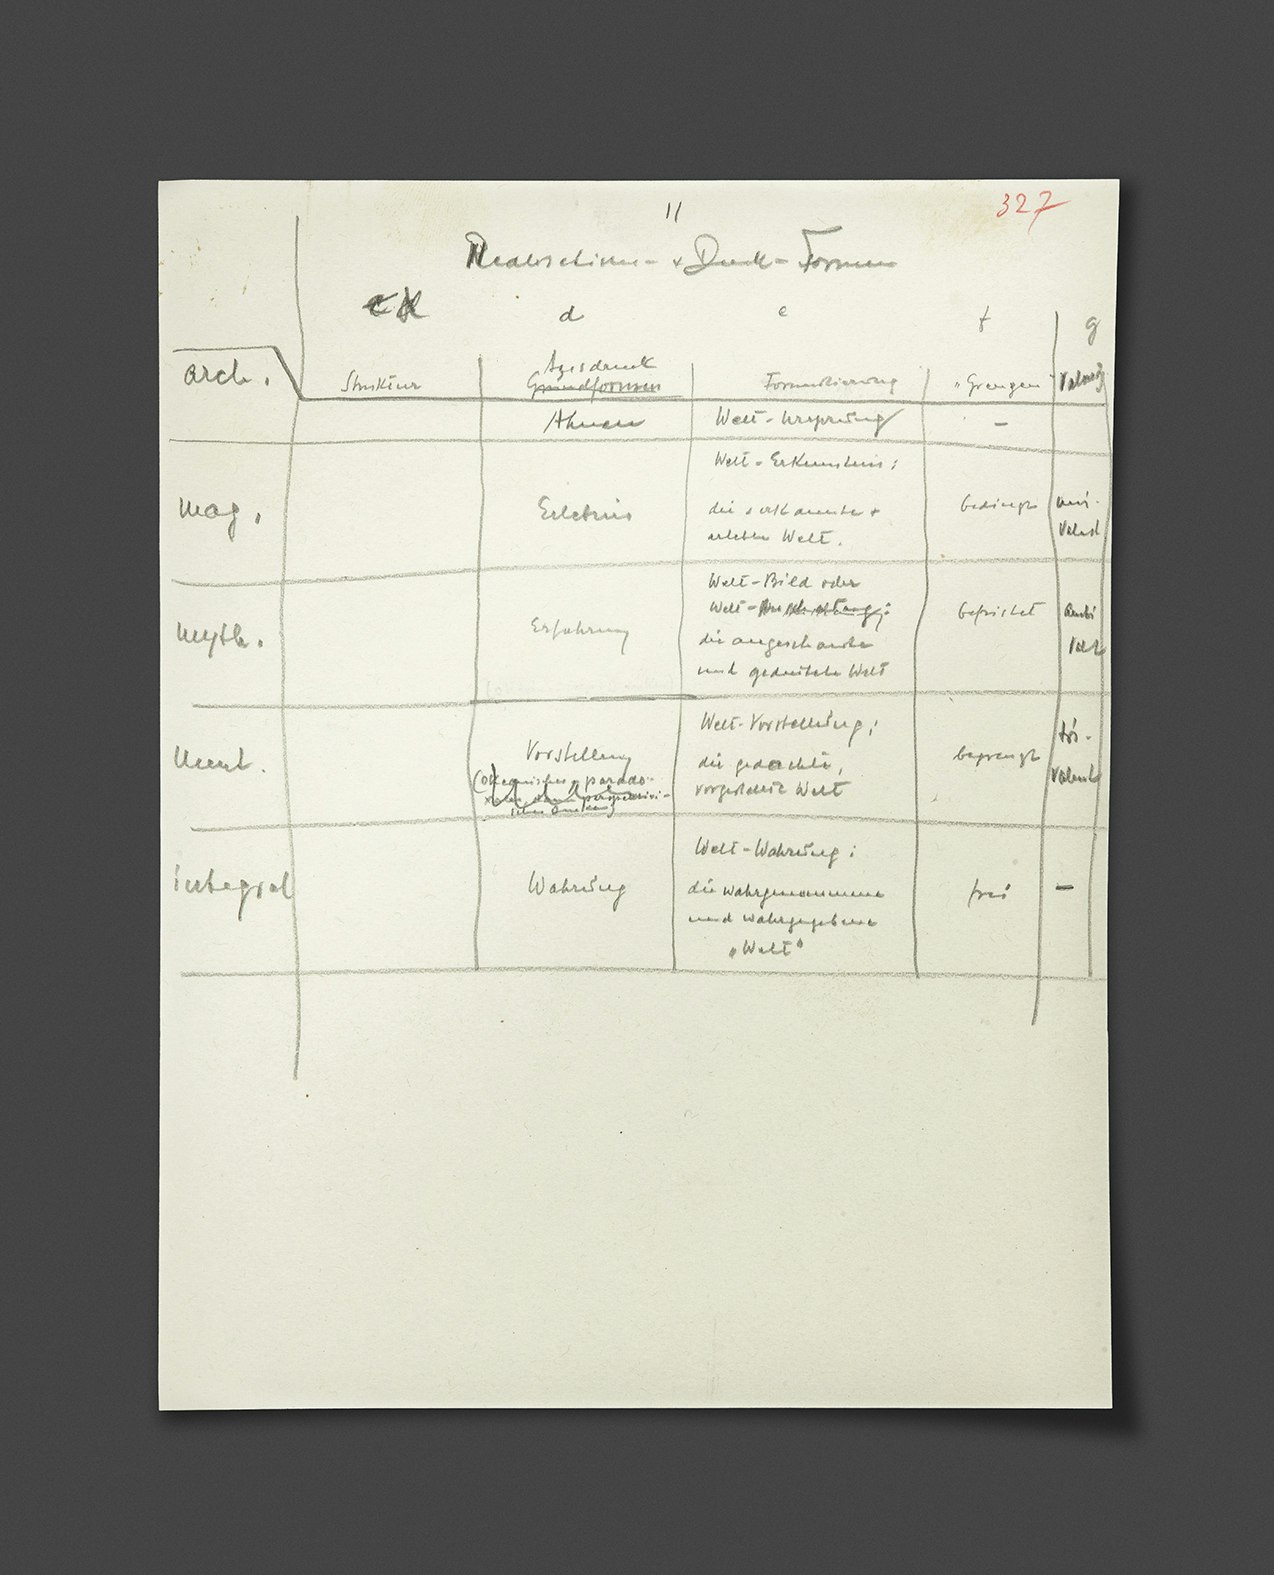 11
327
Realisations- + Denk-Formen
d e f g
arch. Struktur Ausdruck Formulierung „Grenzen" Valenz
Grundformen
Ahnen Welt-Ursprung –
Welt-Erkenntnis:
mag. Erlebnis bedingt uni-
die erkannte + valent
erlebte Welt.
Welt-Bild oder
Welt-Anschauung:
myth. Erfahrung die angeschaute befristet ambi
und gedeutete Welt valent
Welt-Vorstellung:
ment. Vorstellung die gedachte, begrenzt tri-
vorgestellte Welt valent
Welt-Wahrung:
integral Wahrung die wahrgenommene frei –
und wahrgegebene
„Welt"